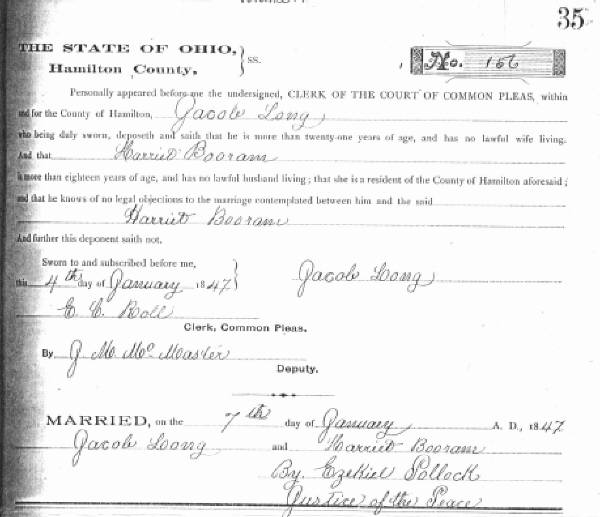 35
THE STATE OF OHIO, } ss.
Hamilton County,
No. 156
Personally appeared before me the undersigned, CLERK OF THE COURT OF COMMON PLEAS, within
and for the County of Hamilton, Jacob Long
who being duly sworn, deposeth and saith that he is more than twenty-one years of age, and has no lawful wife living.
And that Harriet Booram
is more than eighteen years of age, and has no lawful husband living; that she is a resident of the County of Hamilton aforesaid;
and that he knows of no legal objections to the marriage contemplated between him and the said
Harriet Booram
And further this deponent saith not.
Sworn to and subscribed before me,
this 4th day of January 1847 } Jacob Long
E. C. Roll
Clerk, Common Pleas.
By J. M. Mc. Master
Deputy.
MARRIED, on the 7th day of January A. D., 1847
Jacob Long and Harriet Booram
By Ezekiel Pollock
Justice of the Peace